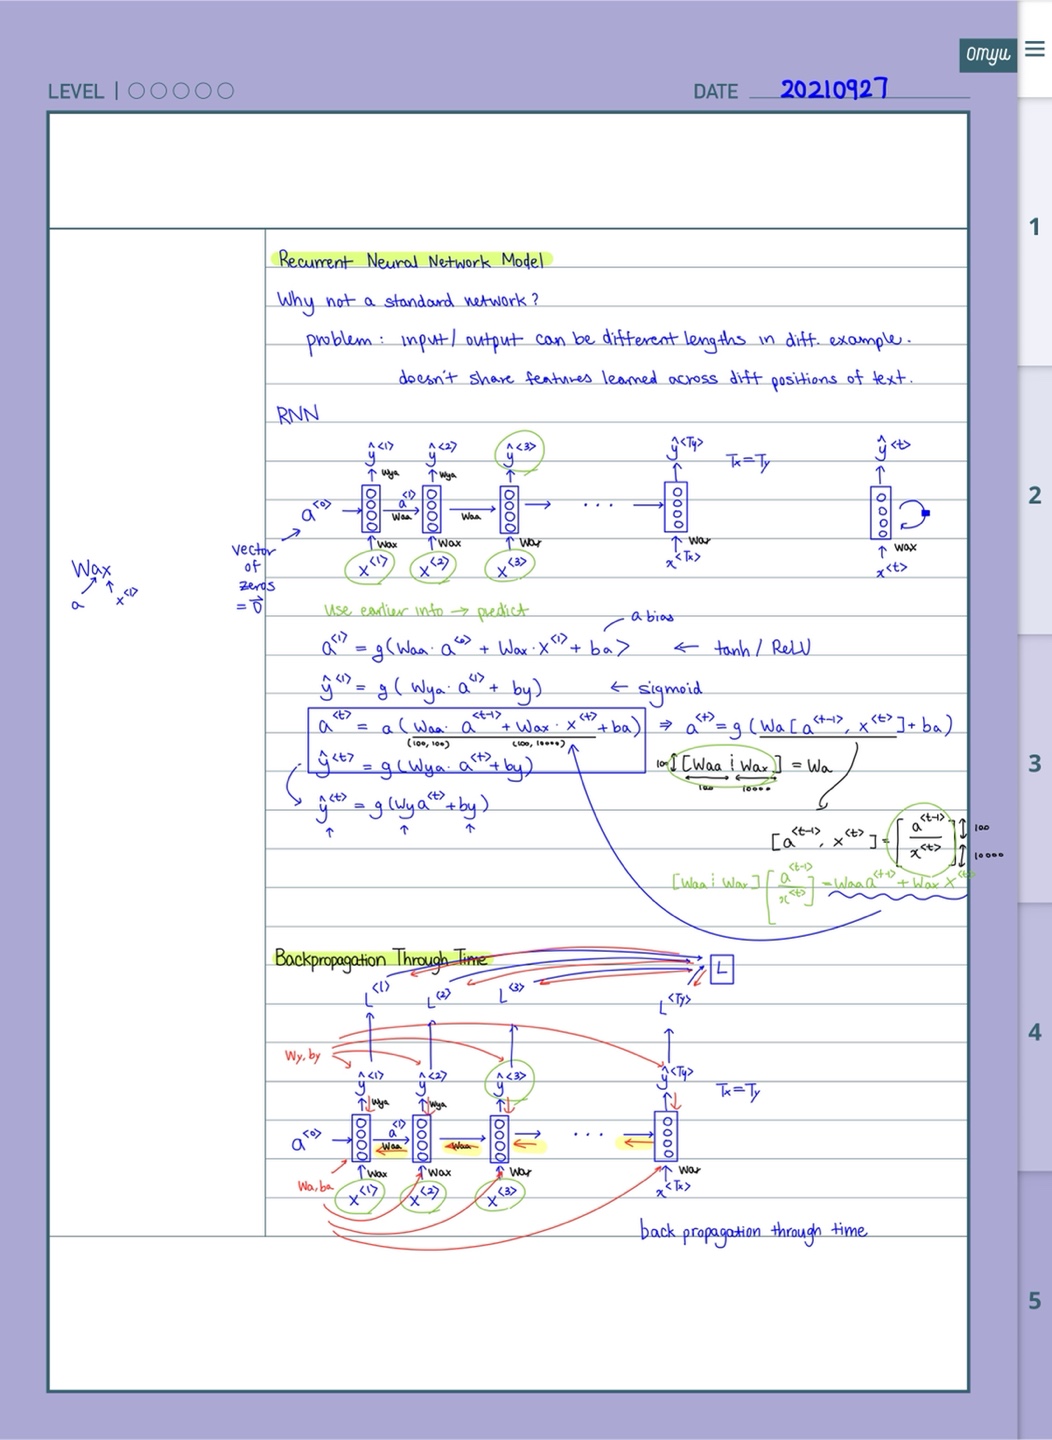 omyu
LEVEL | ○○○○○
DATE 20210927
1
2
3
4
5
Recurrent Neural Network Model
Why not a standard network?
problem : input / output can be different lengths in diff. example.
doesn't share features learned across diff positions of text.
RNN
ŷ<1> ŷ<2> ŷ<3> ŷ<Ty> Tx=Ty ŷ<t>
Wya Wya
a<0> a<1> ...
Waa Waa
Wax Wax Wax Wax Wax
x<1> x<2> x<3> x<Tx> x<t>
vector
of
zeros
= 0⃗
Wax
a x<1>
Use earlier info → predict
a bias
a<1> = g(Waa· a<0> + Wax· x<1> + ba) ← tanh / ReLU
ŷ<1> = g( Wya· a<1> + by) ← sigmoid
a<t> = a ( Waa· a<t-1> + Wax · x<t> + ba) ⇒ a<t> = g ( Wa [ a<t-1>, x<t> ] + ba)
(100, 100) (100, 10000)
ŷ<t> = g( Wya· a<t> + by)
100 [ Waa ⋮ Wax ] = Wa
100 10000
ŷ<t> = g ( Wy a<t> + by)
[ a<t-1>, x<t> ] = [ a<t-1> / x<t> ] 100
10000
[ Waa ⋮ Wax ] [ a<t-1> / x<t> ] = Waa a<t-1> + Wax x<t>
Backpropagation Through Time
L
L<1> L<2> L<3> L<Ty>
Wy, by
ŷ<1> ŷ<2> ŷ<3> ŷ<Ty> Tx=Ty
Wya Wya
a<0> a<1> ...
Waa Waa
Wa, ba
Wax Wax Wax Wax
x<1> x<2> x<3> x<Tx>
back propagation through time